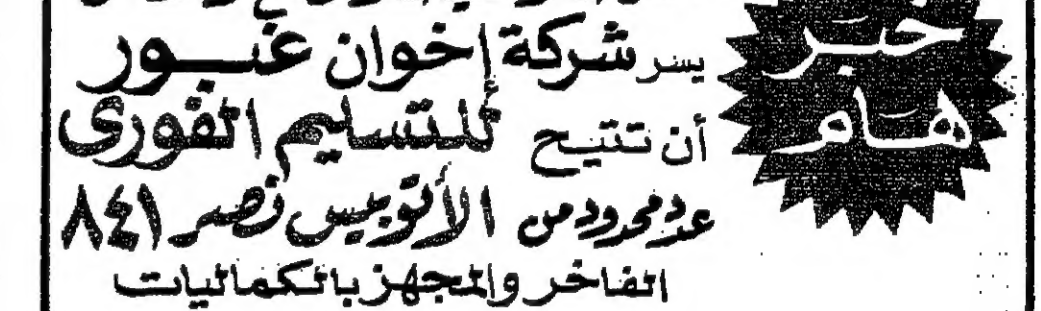 خبر
هام
يسر شركة إخوان غبور
أن تتيح للتسليم الفورى
عدد محدود من الأتوبيس نصر ٨٤١
الفاخر والمجهز بالكماليات